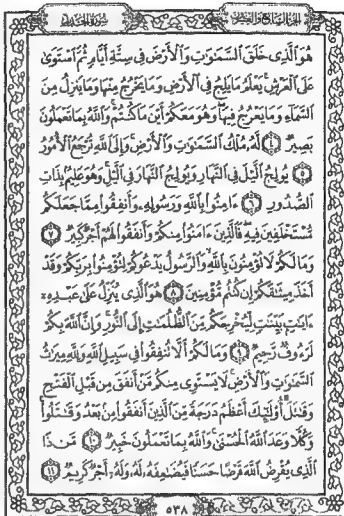 الجزء السابع والعشرون
سورة الحديد
هُوَ ٱلَّذِى خَلَقَ ٱلسَّمَٰوَٰتِ وَٱلْأَرْضَ فِى سِتَّةِ أَيَّامٍ ثُمَّ ٱسْتَوَىٰ
عَلَى ٱلْعَرْشِ يَعْلَمُ مَا يَلِجُ فِى ٱلْأَرْضِ وَمَا يَخْرُجُ مِنْهَا وَمَا يَنزِلُ مِنَ
ٱلسَّمَآءِ وَمَا يَعْرُجُ فِيهَا وَهُوَ مَعَكُمْ أَيْنَ مَا كُنتُمْ وَٱللَّهُ بِمَا تَعْمَلُونَ
بَصِيرٌ ٤ لَّهُۥ مُلْكُ ٱلسَّمَٰوَٰتِ وَٱلْأَرْضِ وَإِلَى ٱللَّهِ تُرْجَعُ ٱلْأُمُورُ
٥ يُولِجُ ٱلَّيْلَ فِى ٱلنَّهَارِ وَيُولِجُ ٱلنَّهَارَ فِى ٱلَّيْلِ وَهُوَ عَلِيمٌۢ بِذَاتِ
ٱلصُّدُورِ ٦ ءَامِنُوا۟ بِٱللَّهِ وَرَسُولِهِۦ وَأَنفِقُوا۟ مِمَّا جَعَلَكُم
مُّسْتَخْلَفِينَ فِيهِ فَٱلَّذِينَ ءَامَنُوا۟ مِنكُمْ وَأَنفَقُوا۟ لَهُمْ أَجْرٌ كَبِيرٌ ٧
وَمَا لَكُمْ لَا تُؤْمِنُونَ بِٱللَّهِ وَٱلرَّسُولُ يَدْعُوكُمْ لِتُؤْمِنُوا۟ بِرَبِّكُمْ وَقَدْ
أَخَذَ مِيثَٰقَكُمْ إِن كُنتُم مُّؤْمِنِينَ ٨ هُوَ ٱلَّذِى يُنَزِّلُ عَلَىٰ عَبْدِهِۦٓ
ءَايَٰتٍۭ بَيِّنَٰتٍ لِّيُخْرِجَكُم مِّنَ ٱلظُّلُمَٰتِ إِلَى ٱلنُّورِ وَإِنَّ ٱللَّهَ بِكُمْ
لَرَءُوفٌ رَّحِيمٌ ٩ وَمَا لَكُمْ أَلَّا تُنفِقُوا۟ فِى سَبِيلِ ٱللَّهِ وَلِلَّهِ مِيرَٰثُ
ٱلسَّمَٰوَٰتِ وَٱلْأَرْضِ لَا يَسْتَوِى مِنكُم مَّنْ أَنفَقَ مِن قَبْلِ ٱلْفَتْحِ
وَقَٰتَلَ أُو۟لَٰٓئِكَ أَعْظَمُ دَرَجَةً مِّنَ ٱلَّذِينَ أَنفَقُوا۟ مِنۢ بَعْدُ وَقَٰتَلُوا۟
وَكُلًّا وَعَدَ ٱللَّهُ ٱلْحُسْنَىٰ وَٱللَّهُ بِمَا تَعْمَلُونَ خَبِيرٌ ١٠ مَّن ذَا
ٱلَّذِى يُقْرِضُ ٱللَّهَ قَرْضًا حَسَنًا فَيُضَٰعِفَهُۥ لَهُۥ وَلَهُۥٓ أَجْرٌ كَرِيمٌ ١١
٥٣٨